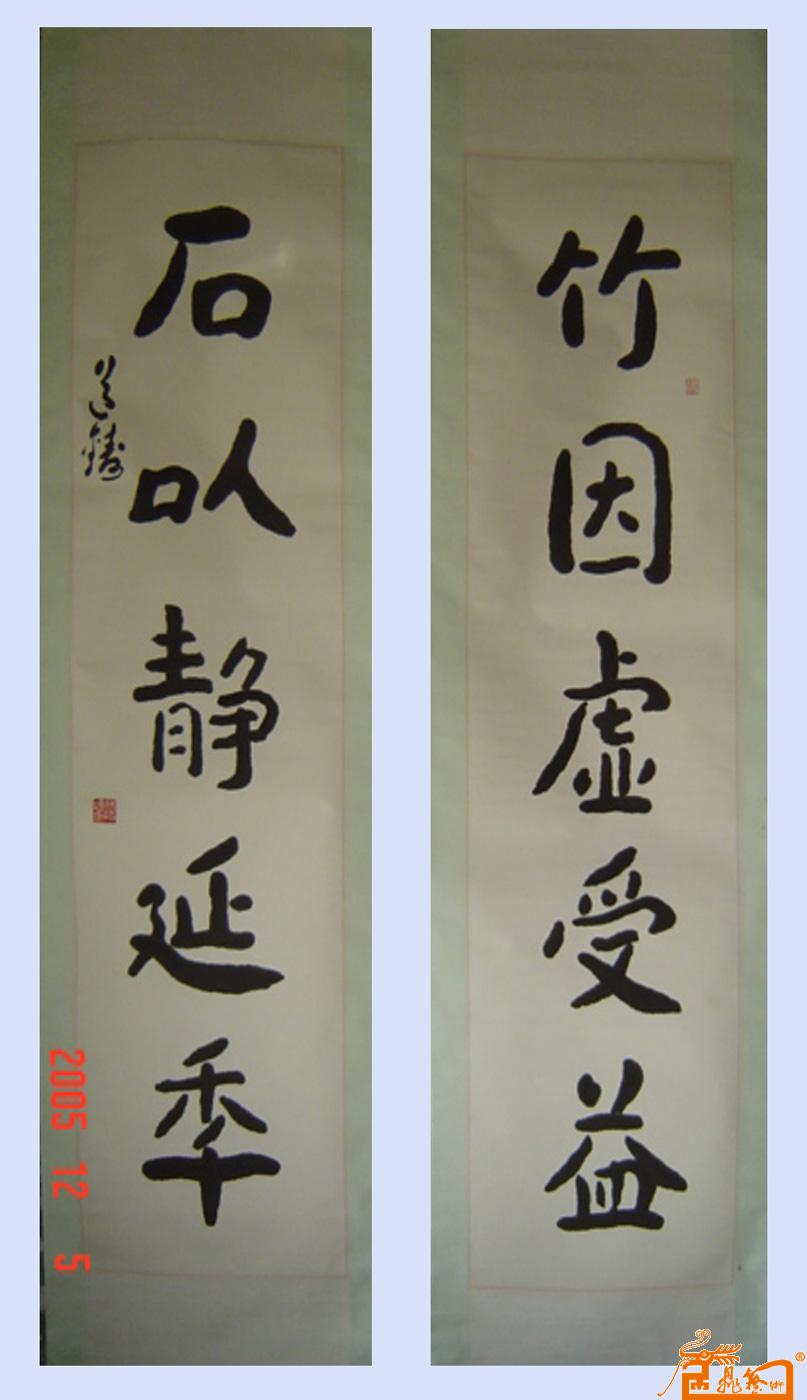 竹因虚受益
石以静延年
2005 12 5